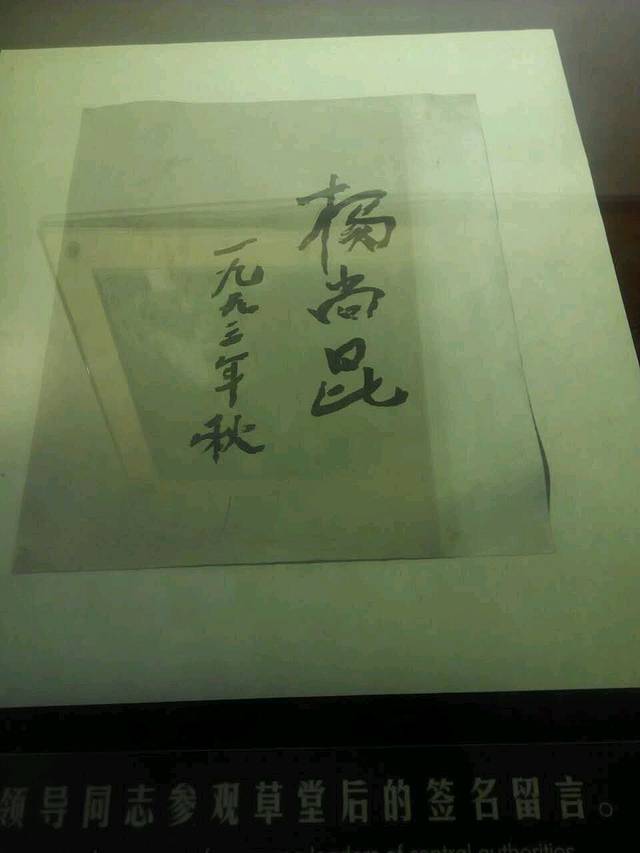 杨尚昆
一九九三年秋
领导同志参观草堂后的签名留言。
leaders of central authorities